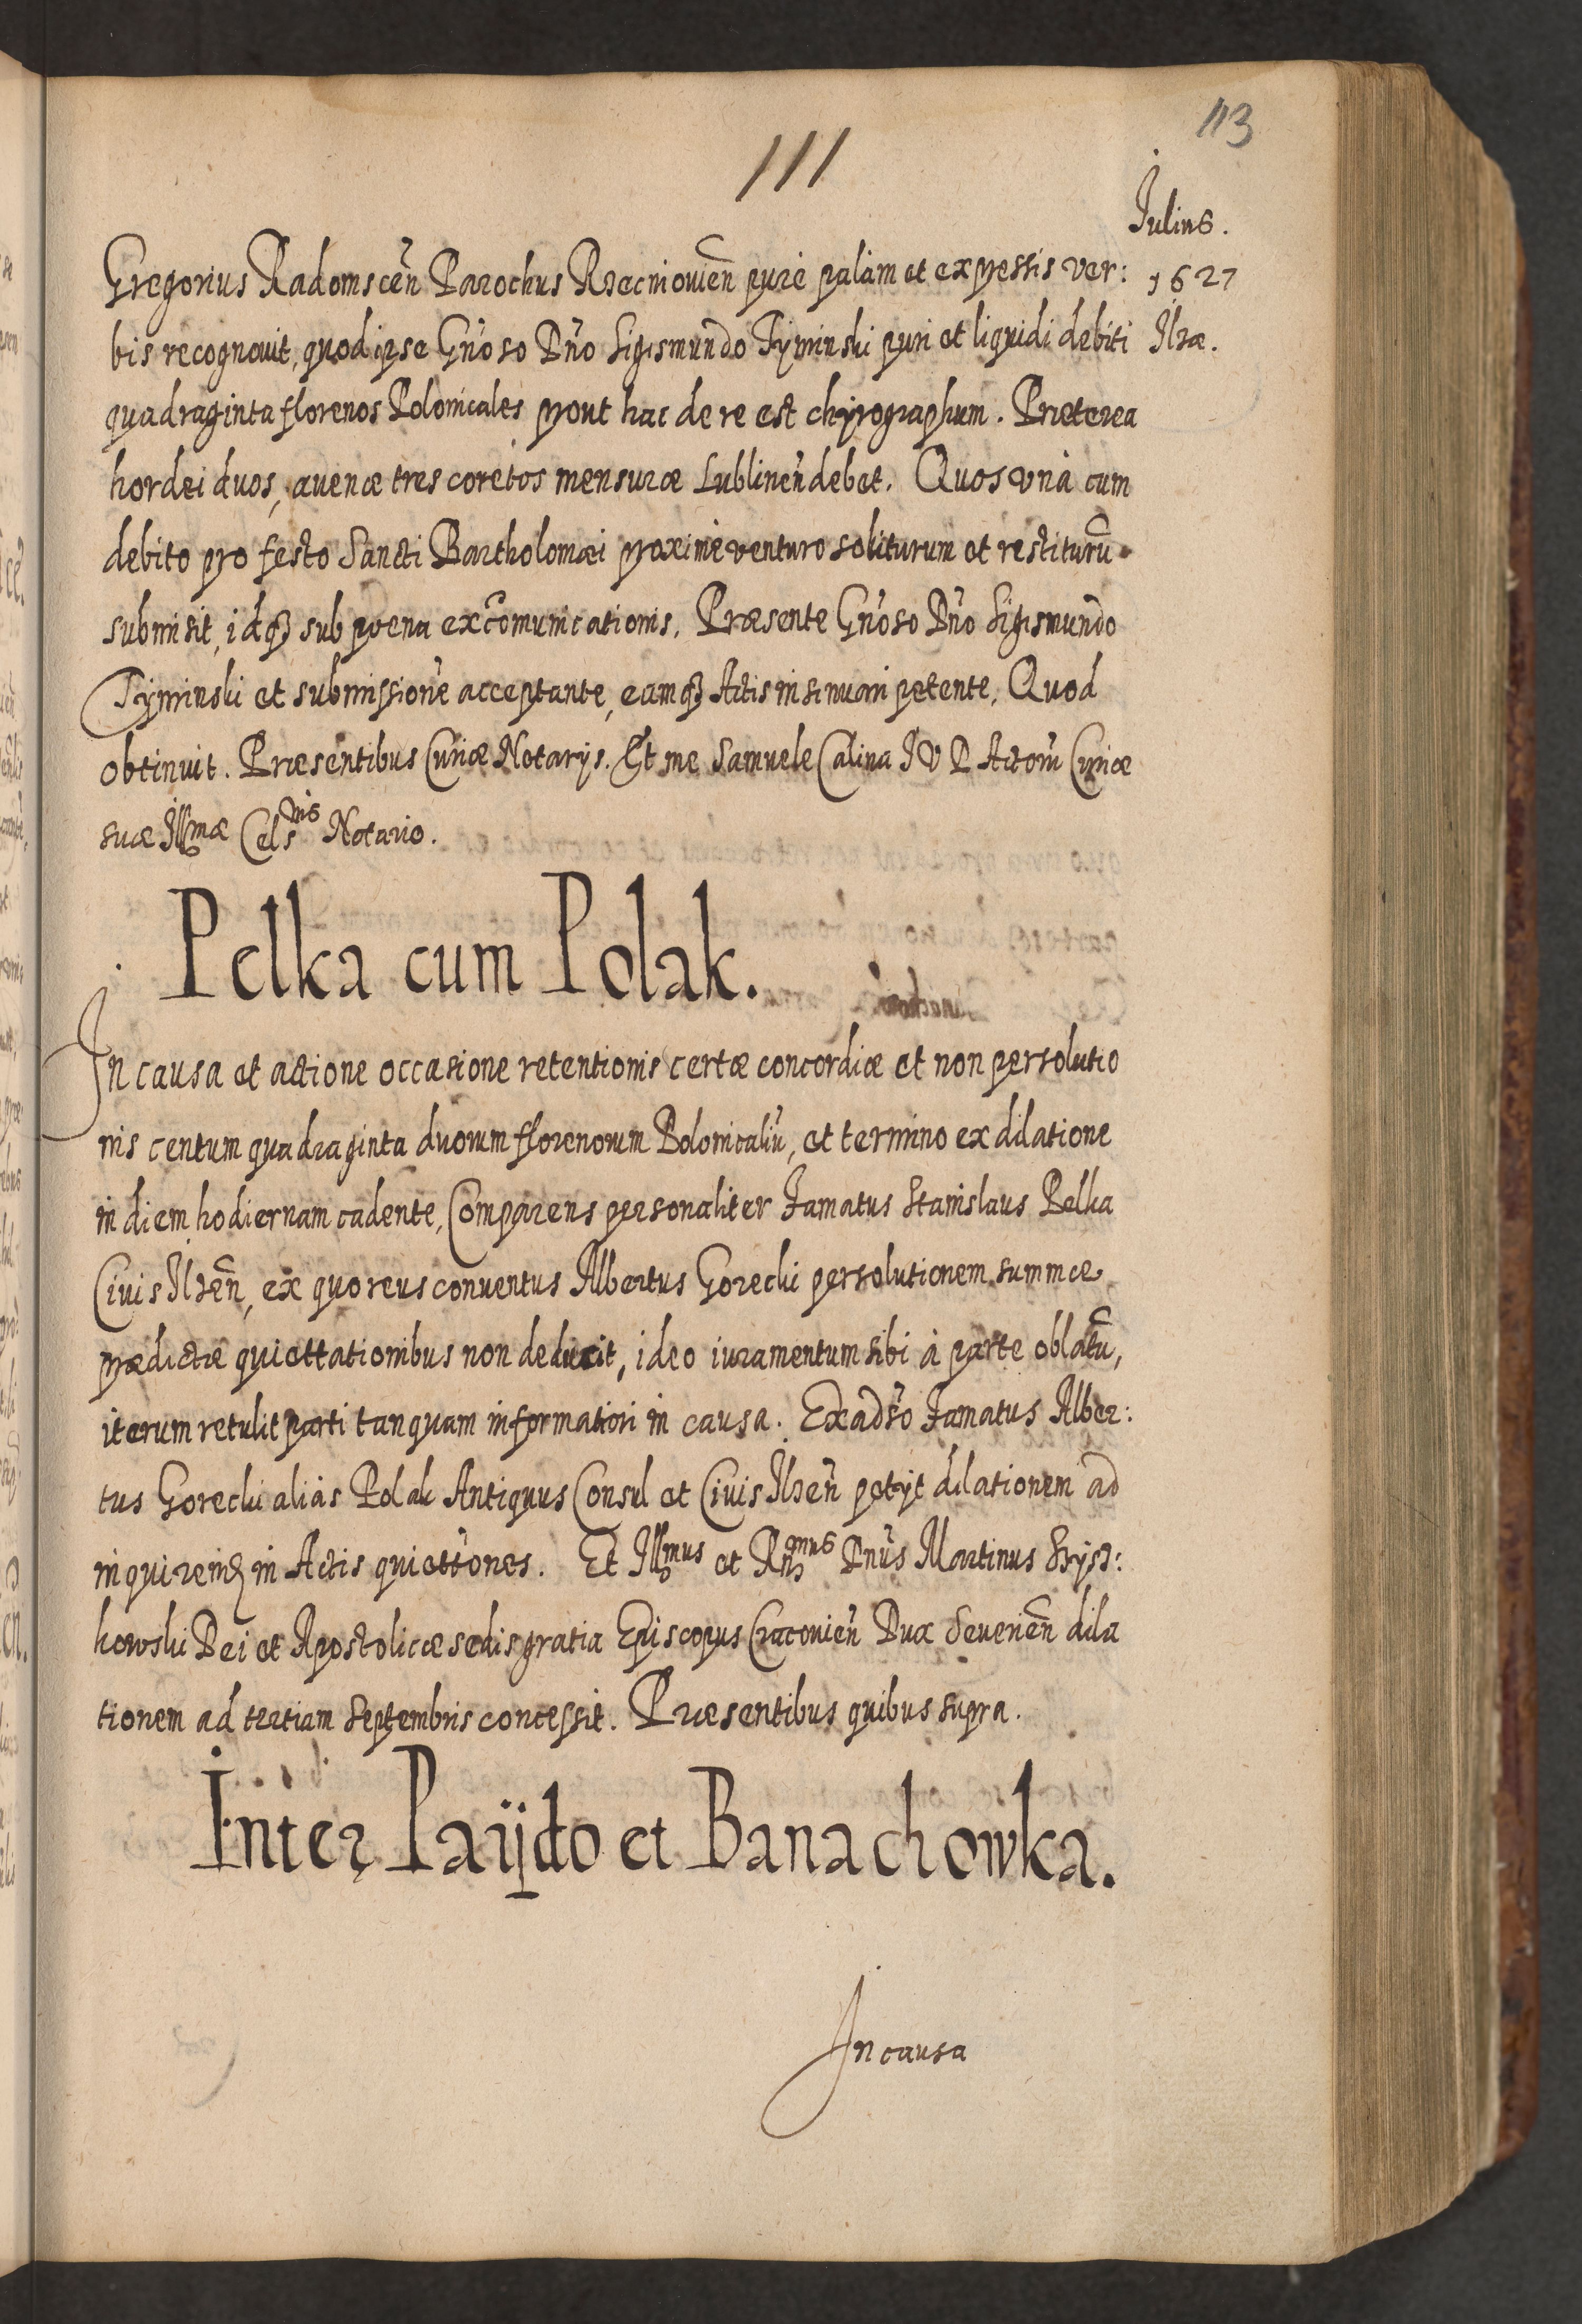 113
111
Julius.
Gregorius Radomscen̄ Parochus Rzecniowien̄ pure palàm et expressis ver: 1627
bis recognouit, quod ipse Gn̄oso Dn̄o Sigismundo Tyminski puri et liquidi debiti Ilzæ.
quadraginta florenos Polonicales prout hac de re est chyrographum. Præterea
hordei duos, auenæ tres coretos mensuræ Lublinen̄ debet. Quos vnà cum
debito pro festo Sancti Bartholomæi proximè venturo soliturum et restiturū
submisit, idq3 sub pœna excōmunicationis. Præsente Gn̄oso Dn̄o Sigismundo
Tyminski et submissionē acceptante, eamq3 Actis insinuari petente. Quod
obtinuit. Præsentibus Curiæ Notarijs. Et me Samuele Calina I V D Actorū Curiæ
suæ Illmæ Celsnis Notario.
Pelka cum Polak.
In causa et actione occasione retentionis certæ concordiæ et non persolutio
nis centum quadraginta duorum florenorum Polonicaliū, et termino ex dilatione
in diem hodiernam cadente, Comparens personaliter Famatus Stanislaus Pelka
Ciuis Ilzen̄, ex quo reus conuentus Albertus Gorecki persolutionem summæ
prædictæ quiettationibus non deducit, ideo iuramentum sibi à parte oblatū,
iterum retulit parti tanquam informatiori in causa. Ex adūso Famatus Alber:
tus Gorecki aliàs Polak Antiquus Consul et Ciuis Ilzen̄ petijt dilationem ad
inquirend in Actis quiettōnes. Et Illmus et Rndmus Dn̄us Martinus Szysz:
kowski Dei et Apostolicæ sedis gratia Episcopus Cracouien̄ Dux Seuerien̄ dila
tionem ad tertiam Septembris concessit. Præsentibus quibus supra.
Inter Paijdo et Banachowka.
In causa